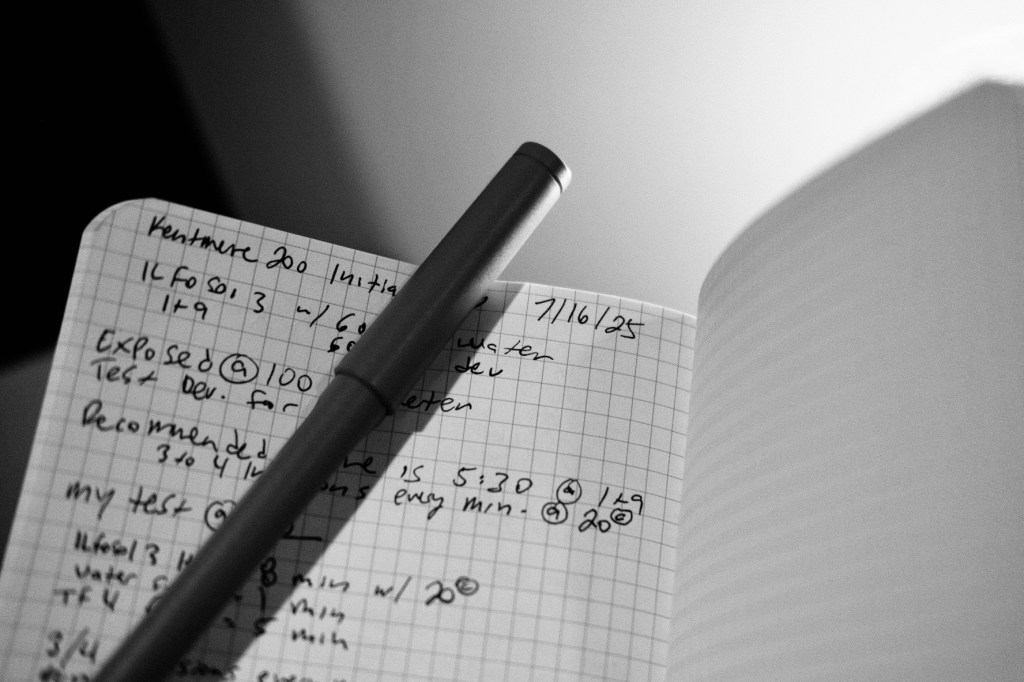 Kentmere 200 Initia
7/16/25
ILfosol 3 w/ 60 water
1+9 dev
Exposed @ 100
Test Dev. for
Recommended is 5:30 @ 1+9
3 to 4 every min. @ 20©
my test @
ILfosol 3 8 min w/ 20©
water 1 min
TF4 = 5 min
3/4